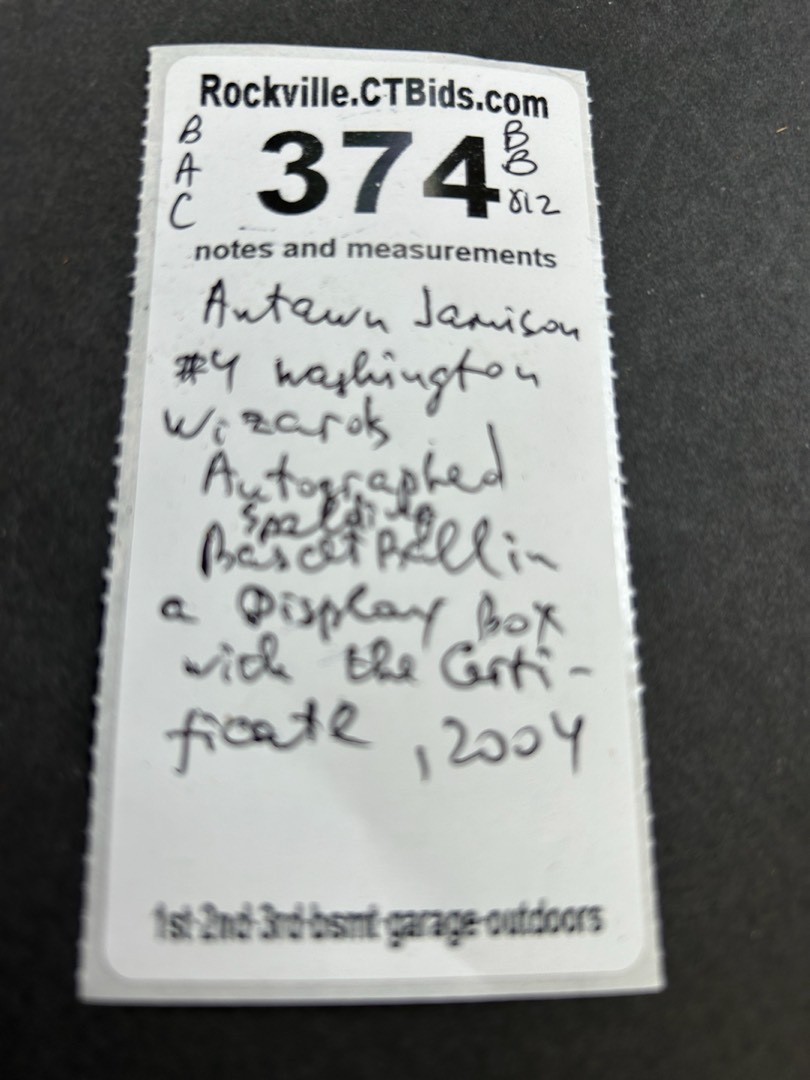 Rockville.CTBids.com
B
A
C
374
B
B
812
notes and measurements
Antawn Jamison
#4 Washington
Wizards
Autographed
Spalding
BascetBall in
a Display Box
with the Certi-
ficate , 2004
1st-2nd-3rd-bsmt-garage-outdoors